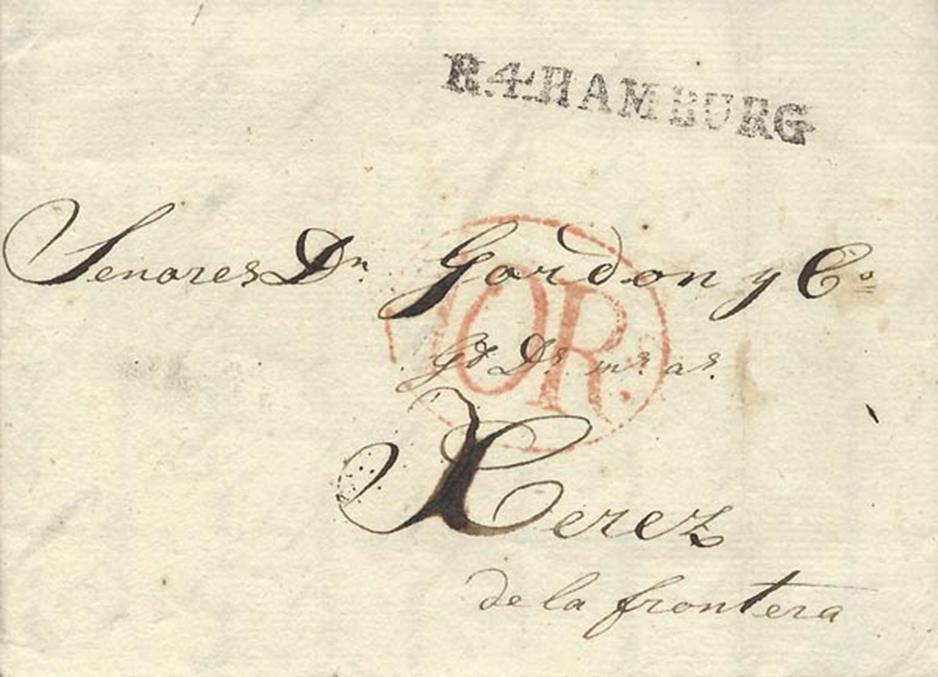 R.4.HAMBURG
Senores Dn. Gordon y Co.
gd Ds. ms. as.
Xerez
de la frontera